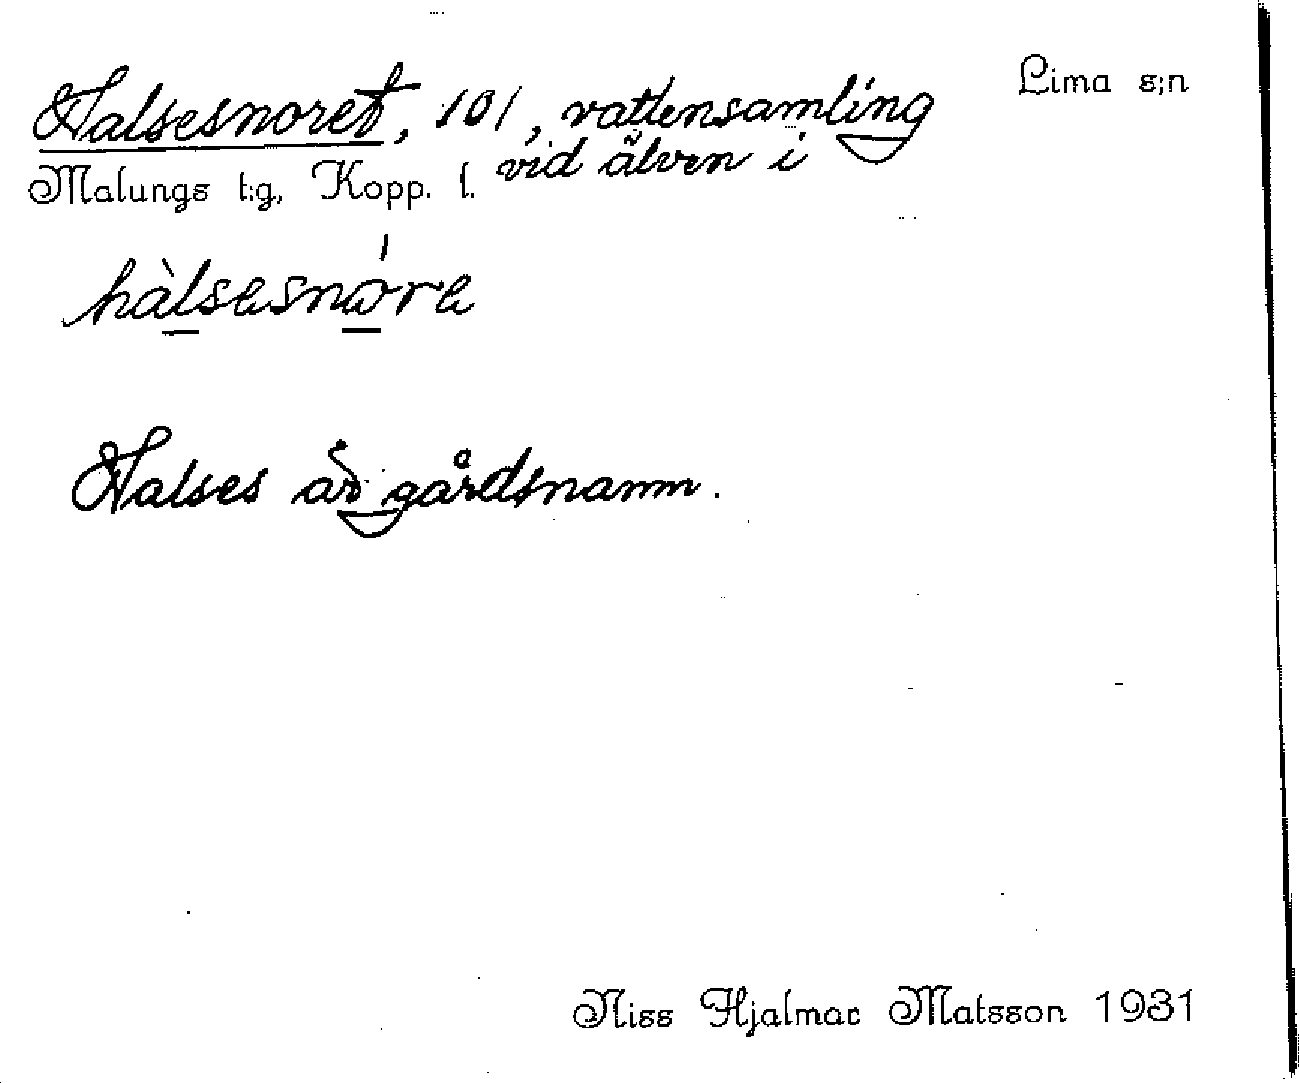 Halsesnoret, 101, vattensamling Lima s:n
vid älven i
Malungs t:g, Kopp. l.
hàlsesnóre
Halses är gårdsnamn.
Niss Hjalmar Matsson 1931